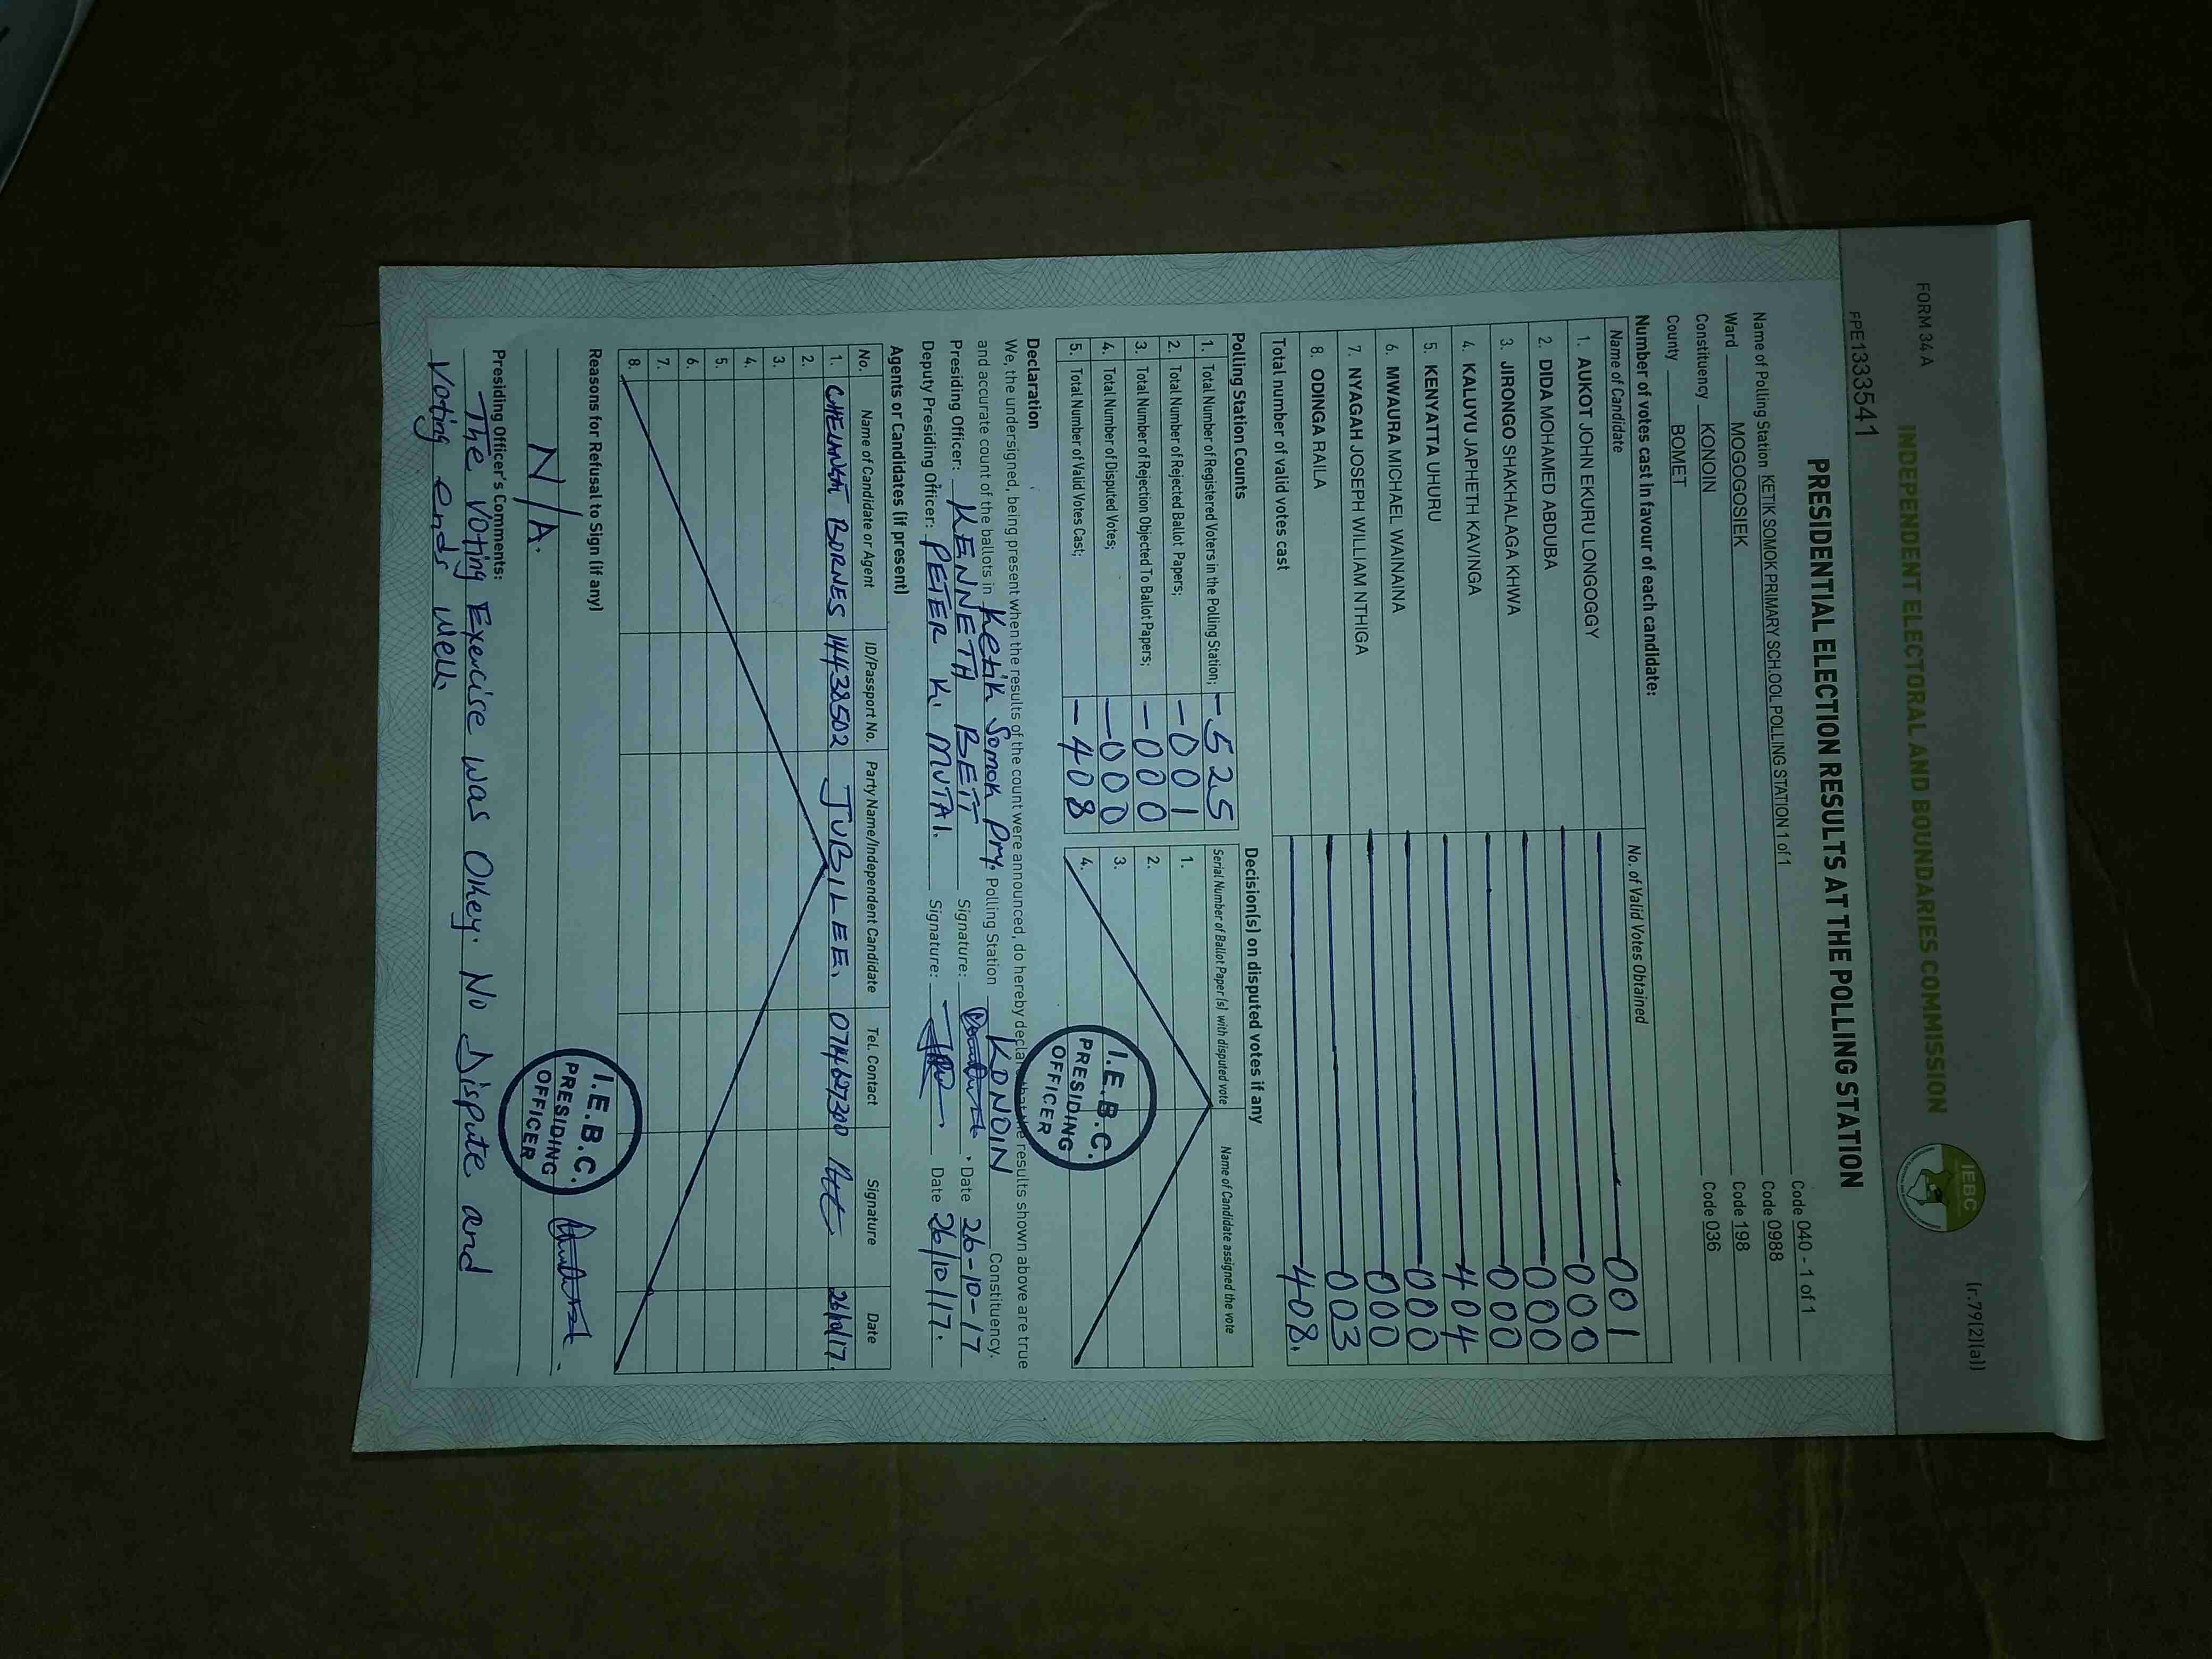 FORM 34 A (r.79(2)(a))
INDEPENDENT ELECTORAL AND BOUNDARIES COMMISSION
IEBC
FPE1333541
PRESIDENTIAL ELECTION RESULTS AT THE POLLING STATION
Name of Polling Station KETIK SOMOK PRIMARY SCHOOL POLLING STATION 1 of 1 Code 040 - 1 of 1
Ward MOGOGOSIEK Code 0988
Constituency KONOIN Code 198
County BOMET Code 036
Number of votes cast in favour of each candidate:
Name of Candidate No. of Valid Votes Obtained
1. AUKOT JOHN EKURU LONGOGGY 001
2. DIDA MOHAMED ABDUBA 000
3. JIRONGO SHAKHALAGA KHWA 000
4. KALUYU JAPHETH KAVINGA 000
5. KENYATTA UHURU 404
6. MWAURA MICHAEL WAINAINA 000
7. NYAGAH JOSEPH WILLIAM NTHIGA 000
8. ODINGA RAILA 003
Total number of valid votes cast 408.
Polling Station Counts
1. Total Number of Registered Voters in the Polling Station; - 525
2. Total Number of Rejected Ballot Papers; - 001
3. Total Number of Rejection Objected To Ballot Papers; - 000
4. Total Number of Disputed Votes; - 000
5. Total Number of Valid Votes Cast; - 408
Decision(s) on disputed votes if any
Serial Number of Ballot Paper (s) with disputed vote Name of Candidate assigned the vote
1.
2.
3.
4.
I.E.B.C.
PRESIDING
OFFICER
Declaration
We, the undersigned, being present when the results of the count were announced, do hereby declare that the results shown above are true
and accurate count of the ballots in Ketik Somok Pry. Polling Station KONOIN Constituency.
Presiding Officer: KENNETH BETT Signature: Date 26-10-17
Deputy Presiding Officer: PETER K. MUTAI. Signature: Date 26/10/17.
Agents or Candidates (if present)
No. Name of Candidate or Agent ID/Passport No. Party Name/Independent Candidate Tel. Contact Signature Date
1. BORNES 14438502 JUBILEE. 26/10/17.
2.
3.
4.
5.
6.
7.
8.
Reasons for Refusal to Sign (if any)
N/A.
I.E.B.C.
PRESIDING
OFFICER
Presiding Officer's Comments:
The Voting Exercise was Okey. No Dispute and
Voting ends well.